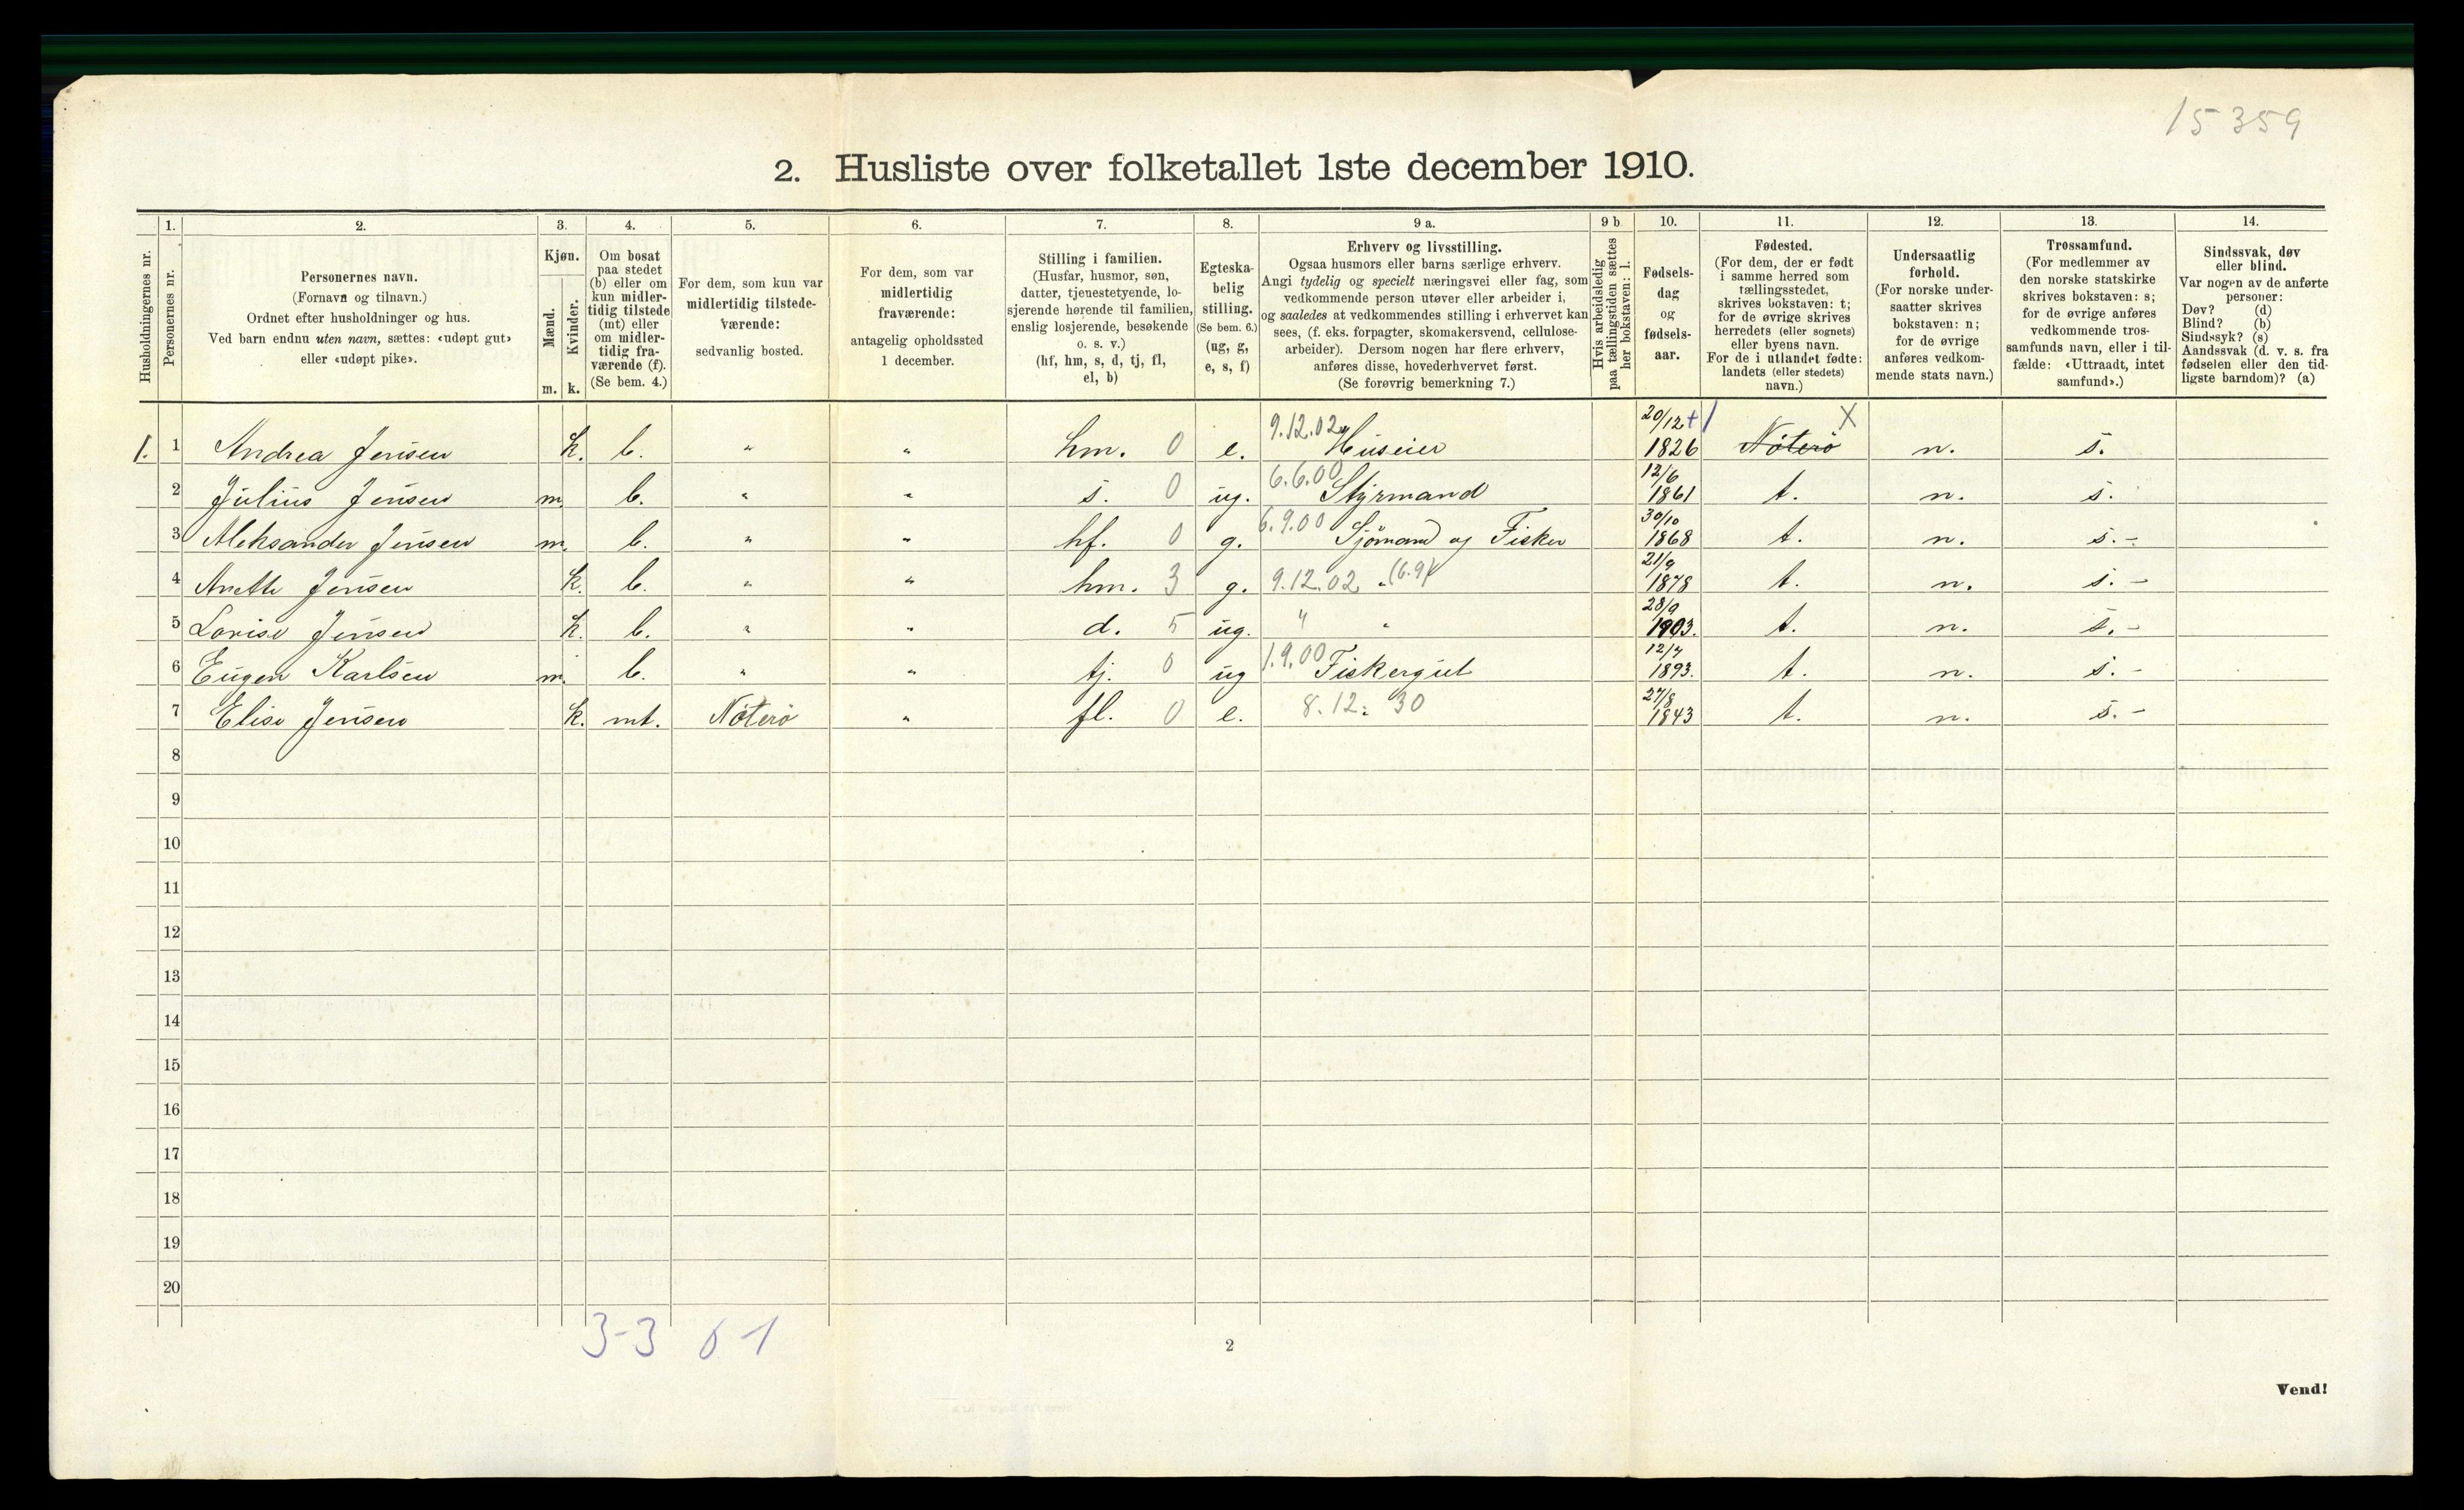 15359
2. Husliste over folketallet 1ste december 1910.
Husholdningernes nr.
1.
Personernes nr.
2.
Personernes navn.
(Fornavn og tilnavn.)
Ordnet efter husholdninger og hus.
Ved barn endnu uten navn, sættes: «udøpt gut»
eller «udøpt pike».
3.
Kjøn.
Mænd.
m.
Kvinder.
k.
4.
Om bosat
paa stedet
(b) eller om
kun midler-
tidig tilstede
(mt) eller
om midler-
tidig fra-
værende (f).
(Se bem. 4.)
5.
For dem, som kun var
midlertidig tilstede-
værende:
sedvanlig bosted.
6.
For dem, som var
midlertidig
fraværende:
antagelig opholdssted
1 december.
7.
Stilling i familien.
(Husfar, husmor, søn,
datter, tjenestetyende, lo-
sjerende hørende til familien,
enslig losjerende, besøkende
o. s. v.)
(hf, hm, s, d, tj, fl,
el, b)
8.
Egteska-
belig
stilling.
(Se bem. 6.)
(ug, g,
e, s, f)
9 a.
Erhverv og livsstilling.
Ogsaa husmors eller barns særlige erhverv.
Angi tydelig og specielt næringsvei eller fag, som
vedkommende person utøver eller arbeider i,
og saaledes at vedkommendes stilling i erhvervet kan
sees, (f. eks. forpagter, skomakersvend, cellulose-
arbeider). Dersom nogen har flere erhverv,
anføres disse, hovederhvervet først.
(Se forøvrig bemerkning 7.)
9 b
Hvis arbeidsledig
paa tællingstiden sættes
her bokstaven: l.
10.
Fødsels-
dag
og
fødsels-
aar.
11.
Fødested.
(For dem, der er født
i samme herred som
tællingsstedet,
skrives bokstaven: t;
for de øvrige skrives
herredets (eller sognets)
eller byens navn.
For de i utlandet fødte:
landets (eller stedets)
navn.)
12.
Undersaatlig
forhold.
(For norske under-
saatter skrives
bokstaven: n;
for de øvrige
anføres vedkom-
mende stats navn.)
13.
Trossamfund.
(For medlemmer av
den norske statskirke
skrives bokstaven: s;
for de øvrige anføres
vedkommende tros-
samfunds navn, eller i til-
fælde: «Uttraadt, intet
samfund».)
14.
Sindssvak, døv
eller blind.
Var nogen av de anførte
personer:
Døv? (d)
Blind? (b)
Sindssyk? (s)
Aandssvak (d. v. s. fra
fødselen eller den tid-
ligste barndom)? (a)
1. 1 Andrea Jensen k. b. " " hm. 0 e. 9.12.02 Huseier 20/12 1826 Nøterø X n. s.
2 Julius Jensen m. b. " " s. 0 ug. 6.6.00 Styrmand 12/6 1861 t. n. s.
3 Aleksander Jensen m. b. " " hf. 0 g. 6.9.00 Sjømand og Fisker 30/10 1868 t. n. s. -
4 Anette Jensen k. b. " " hm. 3 g. 9.12.02 " (6.9) 21/9 1878 t. n. s. -
5 Lovise Jensen k. b. " " d. 5 ug. " " 28/9 1903. t. n. s. -
6 Eugen Karlsen m. b. " " tj. 0 ug 1.9.00 Fiskergut 12/7 1893. t. n. s. -
7 Elise Jensen k. mt. Nøterø " fl. 0 e. 8.12: 30 27/8 1843 t. n. s. -
8
9
10
11
12
13
14
15
16
17
18
19
20
3-3 6-1
2
Vend!